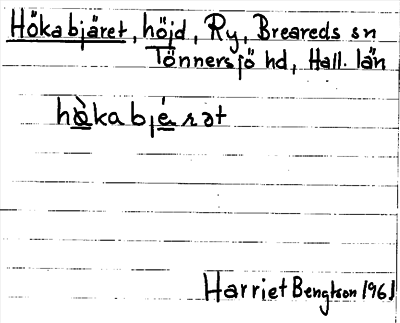 Hökabjäret, höjd, Ry, Breareds sn
Tönnersjö hd, Hall. län
hàkabjérət
Harriet Bengtson 1961